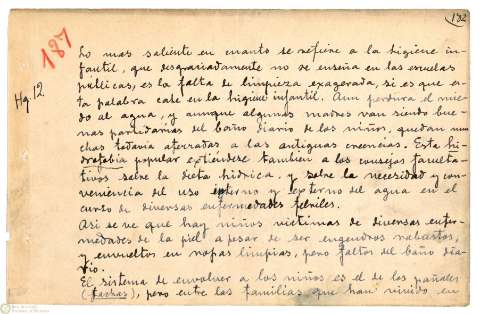 132
187
Hg. 12
Lo mas saliente en cuanto se refiere a la higiene in-
fantil, que desgraciadamente no se enseña en las escuelas
públicas, es la falta de limpieza exagerada, si es que es-
ta palabra cabe en la higiene infantil. Aun perdura el mie-
do al agua, y aunque algunas madres van siendo bue-
nas partidarias del baño diario de los niños, quedan mu-
chas todavia aferradas a las antiguas creencias. Esta hi-
drofobia popular extiéndese tambien a los consejos faculta-
tivos sobre la dieta hidrica, y sobre la necesidad y con-
veniencia del uso interno y externo del agua en el
curso de diversas enfermedades febriles.
Asi se ve que hay niños victimas de diversas enfer-
medades de la piel a pesar de ser engendros robustos,
y envueltos en ropas limpias, pero faltos del baño dia-
rio.
El sistema de envolver a los niños es el de los pañales
(fachas), pero entre las familias que han vivido en